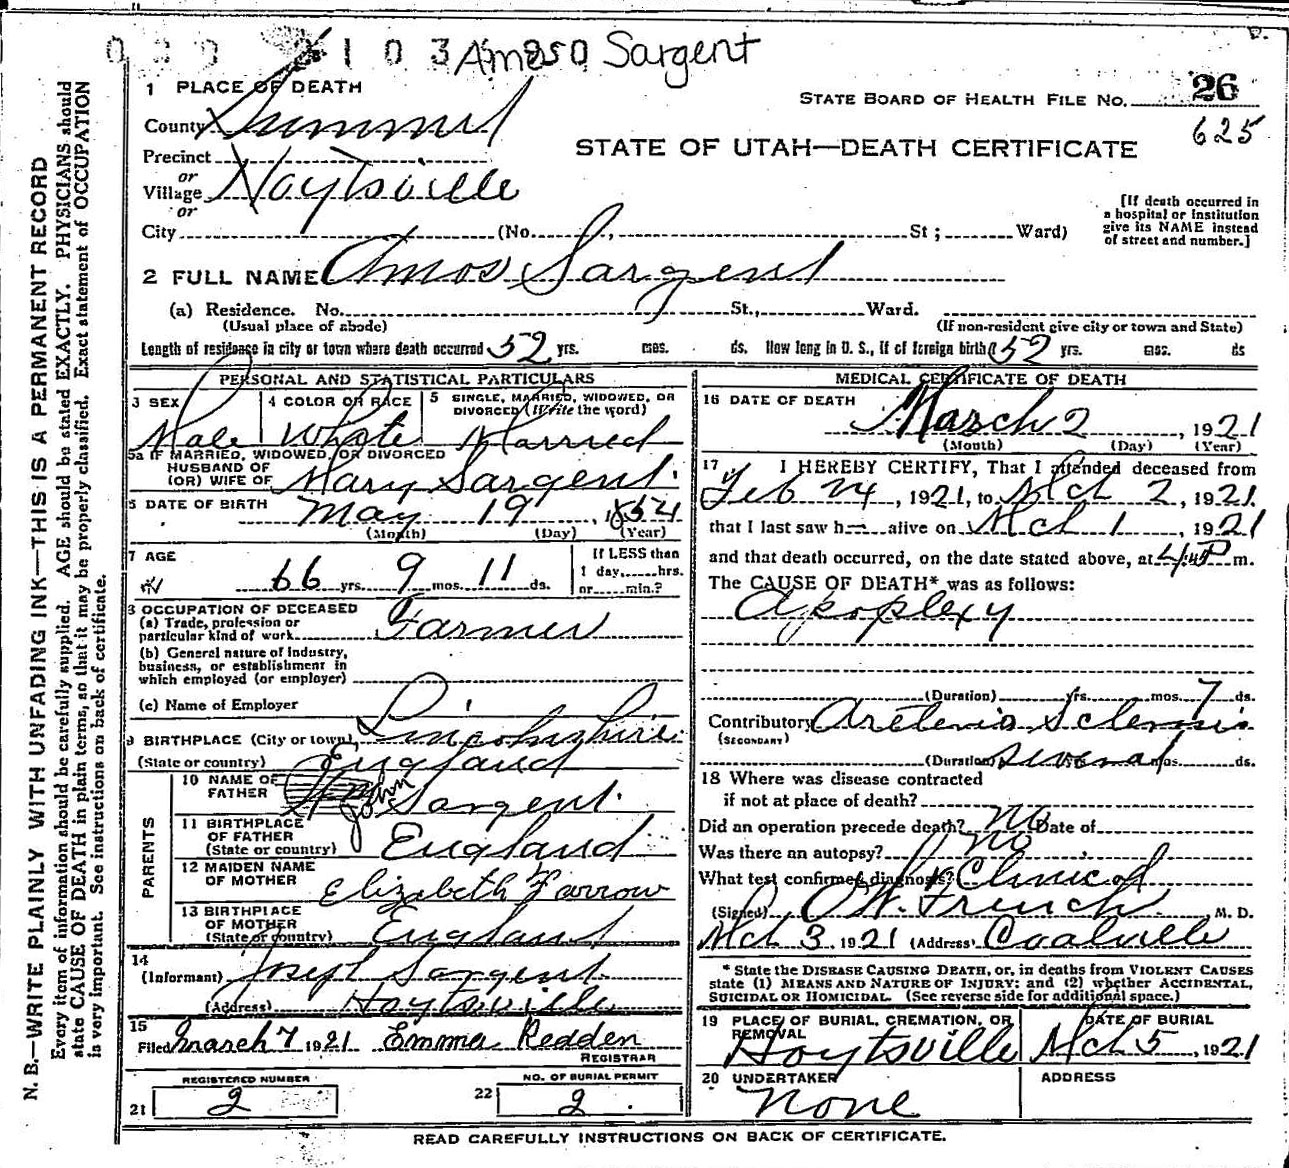 Amos Sargent
1 PLACE OF DEATH
STATE BOARD OF HEALTH FILE NO. 26
County Summit
625
STATE OF UTAH—DEATH CERTIFICATE
Precinct
or
Village Hoytsville
or
[If death occurred in
a hospital or institution
give its NAME instead
of street and number.]
City (No. , St ; Ward)
2 FULL NAME Amos Sargent
(a) Residence. No. St., Ward.
(Usual place of abode) (If non-resident give city or town and State)
Length of residence in city or town where death occurred 52 yrs. mos. ds. How long in U. S., if of foreign birth? 52 yrs. mos. ds
PERSONAL AND STATISTICAL PARTICULARS
3 SEX 4 COLOR OR RACE 5 SINGLE, MARRIED, WIDOWED, OR
DIVORCED (Write the word)
Male White Married
5a IF MARRIED, WIDOWED, OR DIVORCED
HUSBAND OF
(OR) WIFE OF Mary Sargent
6 DATE OF BIRTH May 19, 1854
(Month) (Day) (Year)
7 AGE
66 yrs. 9 mos. 11 ds.
If LESS than
1 day, hrs.
or min.?
8 OCCUPATION OF DECEASED
(a) Trade, profession or
particular kind of work Farmer
(b) General nature of industry,
business, or establishment in
which employed (or employer)
(c) Name of Employer
9 BIRTHPLACE (City or town) Lincolnshire
(State or country) England
PARENTS
10 NAME OF
FATHER John Sargent
11 BIRTHPLACE
OF FATHER
(State or country) England
12 MAIDEN NAME
OF MOTHER Elizabeth Farrow
13 BIRTHPLACE
OF MOTHER
(State or country) England
14
(Informant) Joseph Sargent
(Address) Hoytsville
15
Filed March 7 1921 Emma Redden
REGISTRAR
REGISTERED NUMBER
21 2
NO. OF BURIAL PERMIT
22 2
MEDICAL CERTIFICATE OF DEATH
16 DATE OF DEATH
March 2, 1921
(Month) (Day) (Year)
17 I HEREBY CERTIFY, That I attended deceased from
Feb 24, 1921, to Mch 2, 1921
that I last saw h alive on Mch 1, 1921
and that death occurred, on the date stated above, at 4:45 P m.
The CAUSE OF DEATH* was as follows:
Apoplexy
(Duration) yrs. mos. 7 ds.
Contributory Areterio Sclerosis
(SECONDARY)
(Duration) several mos. ds.
18 Where was disease contracted
if not at place of death?
Did an operation precede death? No Date of
Was there an autopsy? no
What test confirmed diagnosis? Clinical
(Signed) O W. French M. D.
Mch 3 1921 (Address) Coalville
* State the DISEASE CAUSING DEATH, or, in deaths from VIOLENT CAUSES
state (1) MEANS AND NATURE OF INJURY; and (2) whether ACCIDENTAL,
SUICIDAL OR HOMICIDAL. (See reverse side for additional space.)
19 PLACE OF BURIAL, CREMATION, OR
REMOVAL
Hoytsville
DATE OF BURIAL
Mch 5, 1921
20 UNDERTAKER
None
ADDRESS
READ CAREFULLY INSTRUCTIONS ON BACK OF CERTIFICATE.
N. B.—WRITE PLAINLY WITH UNFADING INK—THIS IS A PERMANENT RECORD
Every item of information should be carefully supplied. AGE should be stated EXACTLY. PHYSICIANS should
state CAUSE OF DEATH in plain terms, so that it may be properly classified. Exact statement of OCCUPATION
is very important. See instructions on back of certificate.